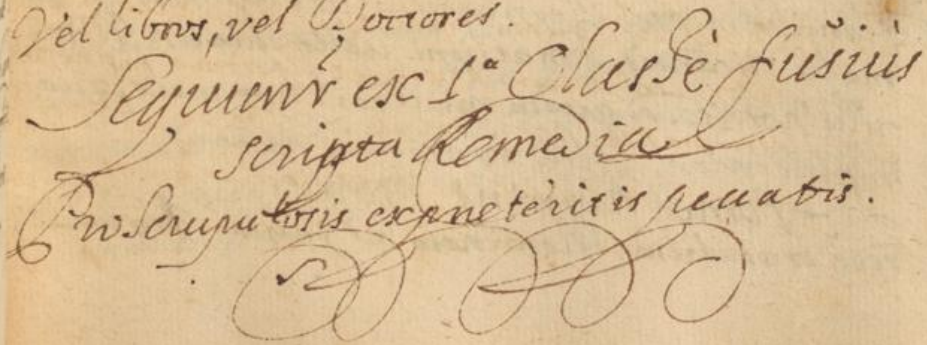 Vel libros, vel Doctores.
Sequuntr̃ ex 1ª Classe fusius
scripta Remedia
Pro Scrupulosis ex praeteritis peccatis.